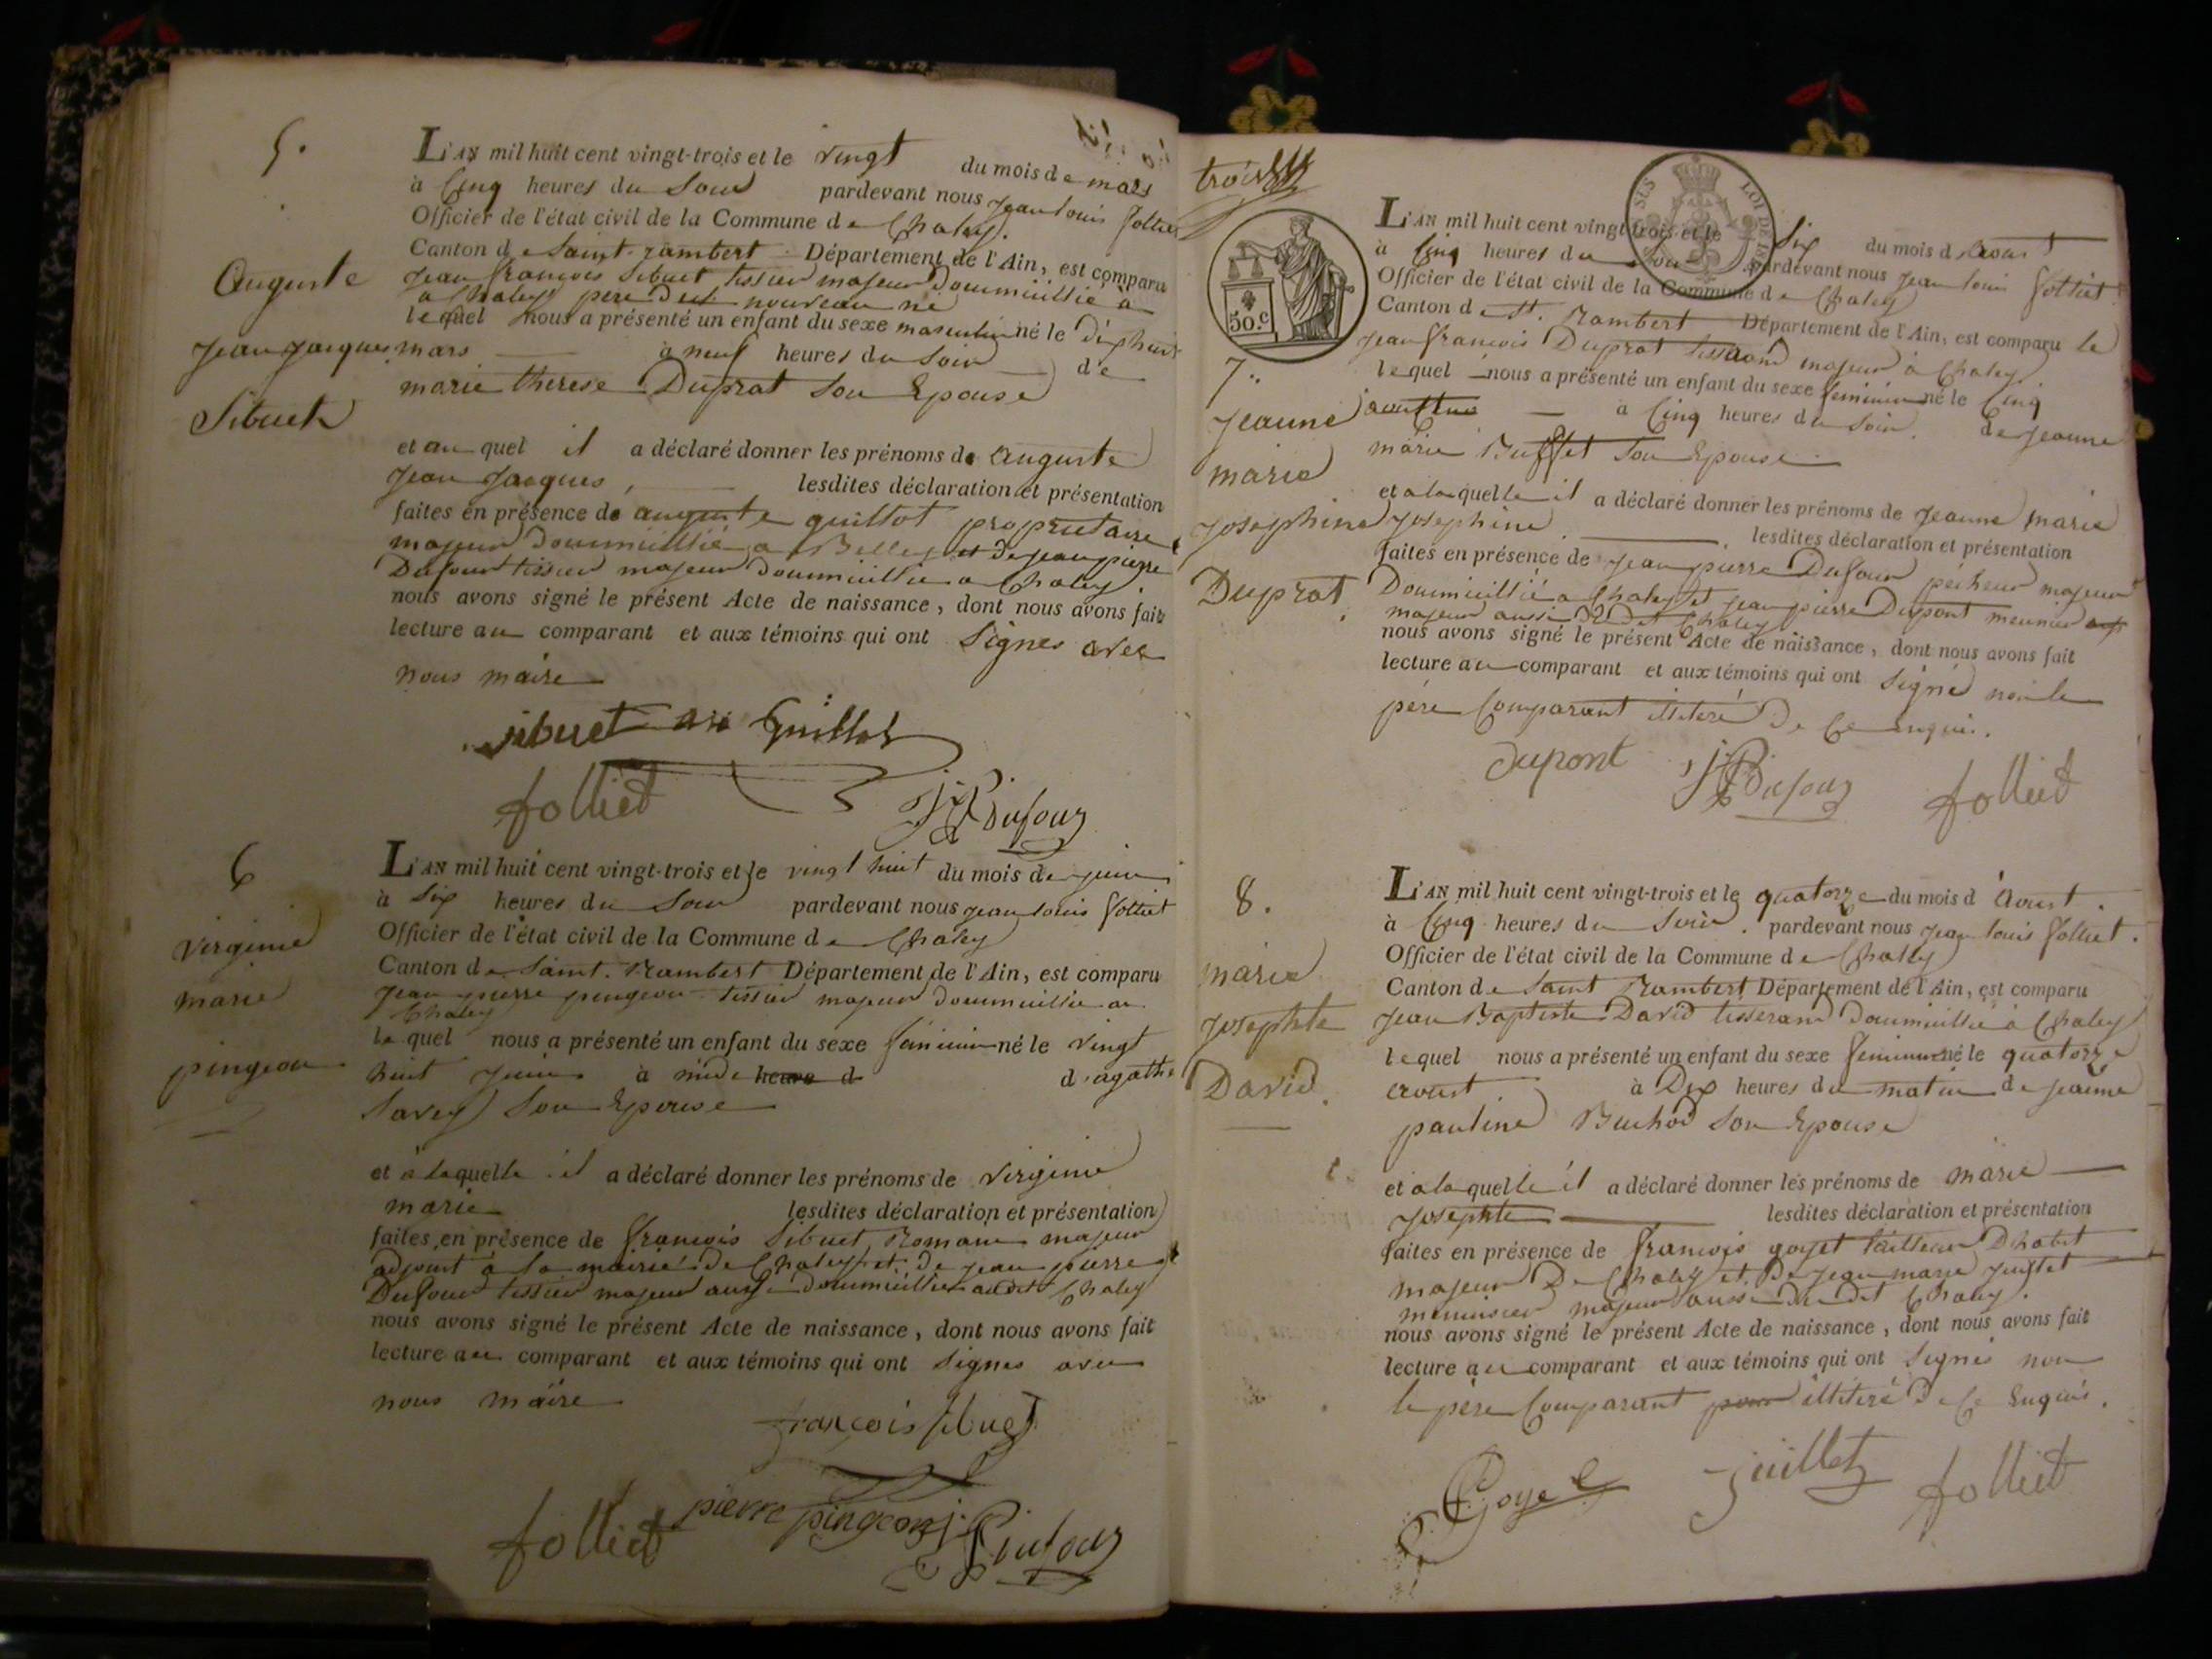 5.
Auguste
Jean Jacques
Sibuet
L'AN mil huit cent vingt-trois et le vingt du mois de mars
à Cinq heures du Soir pardevant nous Jean louis folliet
Officier de l'état civil de la Commune de Chaley.
Canton de Saint-rambert Département de l'Ain, est comparu
Jean françois Sibuet tissier majeur Doumicillié a
a Chaley pere du nouveau né
lequel nous a présenté un enfant du sexe masculin né le dix huit
mars à neuf heures du Soir de
marie therese Duprat Son Epouse
et auquel il a déclaré donner les prénoms de Auguste
Jean Jacques, lesdites déclaration et présentation
faites en présence de auguste guillot proprietaire
majeur Doumicillié a Belley et de Jean pierre
Dufour tissier majeur Doumicillié a Chaley
nous avons signé le présent Acte de naissance, dont nous avons fait
lecture au comparant et aux témoins qui ont Signés avec
nous maire
Sibuet Guillot
folliet JP Dufour
6
virginie
marie
pingeon
L'AN mil huit cent vingt-trois et le vingt huit du mois de juin
à Six heures du Soir pardevant nous Jean louis folliet
Officier de l'état civil de la Commune de Chaley
Canton de Saint. Rambert Département de l'Ain, est comparu
Jean pierre pingeon tissier majeur doumicillié a
Chaley
lequel nous a présenté un enfant du sexe féminin né le vingt
huit Juin à midi heure d d'agathe
Savey Son Epouse
et à laquelle il a déclaré donner les prénoms de virginie
marie lesdites déclaration et présentation
faites en présence de françois Sibuet Romain majeur
adjoint à la mairie de Chaley et de Jean pierre
Dufour tissier majeur aussi doumicillié audit Chaley
nous avons signé le présent Acte de naissance, dont nous avons fait
lecture au comparant et aux témoins qui ont Signés avec
nous maire
françois sibuet
folliet pierre pingeon JP Dufour
trois
50.c
7..
Jeanne
marie
Josephine
Duprat
L'AN mil huit cent vingt-trois et le Six du mois d'aoust
à Cinq heures du Soir pardevant nous Jean louis folliet
Officier de l'état civil de la Commune de Chaley
Canton de St. Rambert Département de l'Ain, est comparu le
Jean françois Duprat tisserand majeur à Chaley.
lequel nous a présenté un enfant du sexe feminin né le Cinq
à Cinq heures du Soir. de Jeanne
marie Buffet Son Epouse
et a laquelle il a déclaré donner les prénoms de Jeanne marie
Josephine. lesdites déclaration et présentation
faites en présence de Jean pierre Dufour pécheur majeur
Doumicillié a Chaley et Jean pierre Dupont meunier
majeur aussi dudit Chaley
nous avons signé le présent Acte de naissance, dont nous avons fait
lecture au comparant et aux témoins qui ont Signé non le
pére Comparant illiteré De Ce enquis.
dupont JP Dufour folliet
8.
marie
Josephte
David.
L'AN mil huit cent vingt-trois et le quatorze du mois d'Aoust.
à Cinq heures du Soir. pardevant nous Jean louis folliet.
Officier de l'état civil de la Commune de Chaley
Canton de Saint Rambert Département de l'Ain, est comparu
Jean Baptiste David tisserand Doumicillié à Chaley
lequel nous a présenté un enfant du sexe feminin né le quatorze
aoust à Dix heures du matin de Jeanne
pauline Buchod Son Epouse
et a laquelle il a déclaré donner les prénoms de marie
Josephte lesdites déclaration et présentation
faites en présence de françois goyet tailleur D'habit
majeur De Chaley et De Jean marie Juillet
menuisier majeur aussi dudit Chaley.
nous avons signé le présent Acte de naissance, dont nous avons fait
lecture au comparant et aux témoins qui ont Signés non
le père Comparant pour illiteré De Ce Enquis.
Goyet juillet folliet